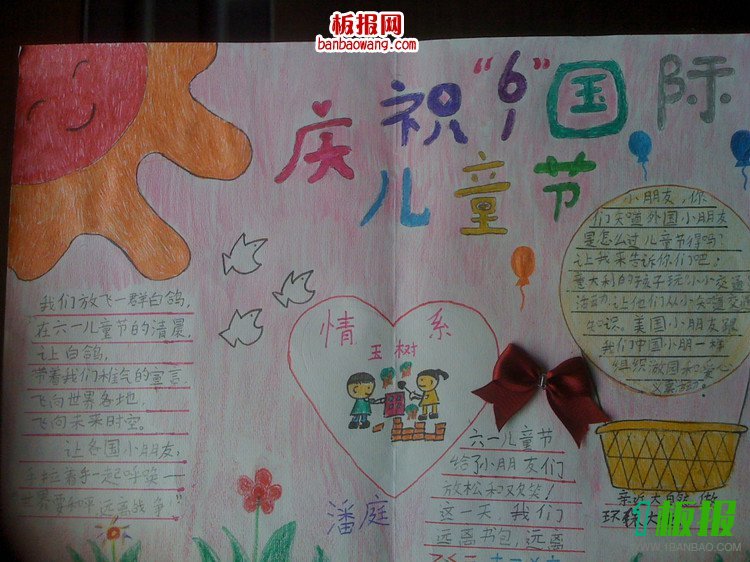 板报网
banbaowang.com
庆祝“6/1”国际
儿童节
小朋友,你
们知道外国小朋友
是怎么过儿童节得吗?
让我来告诉你们吧!
意大利的孩子玩“小小交通
活动,让他们从小知道交通
知识。美国小朋友跟
我们中国小朋一样
组织激园和爱心
义卖活动。
我们放飞一群白鸽,
在六一儿童节的清晨,
让白鸽,
带着我们稚气的宣言
飞向世界各地,
飞向未来时空。
让各国小朋友,
手拉着手一起呼唤——
“世界要和平远离战争!”
情系
玉树
潘庭
六一儿童节
给小朋友们
放松和欢笑!
这一天我们
远离书包,远离
亲近大自然,做
环保大
板报
WWW.1BANBAO.COM